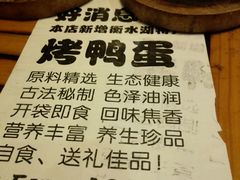 好消息
本店新增衡水湖特
烤鸭蛋
原料精选 生态健康
古法秘制 色泽油润
开袋即食 回味焦香
营养丰富 养生珍品
自食、送礼佳品!